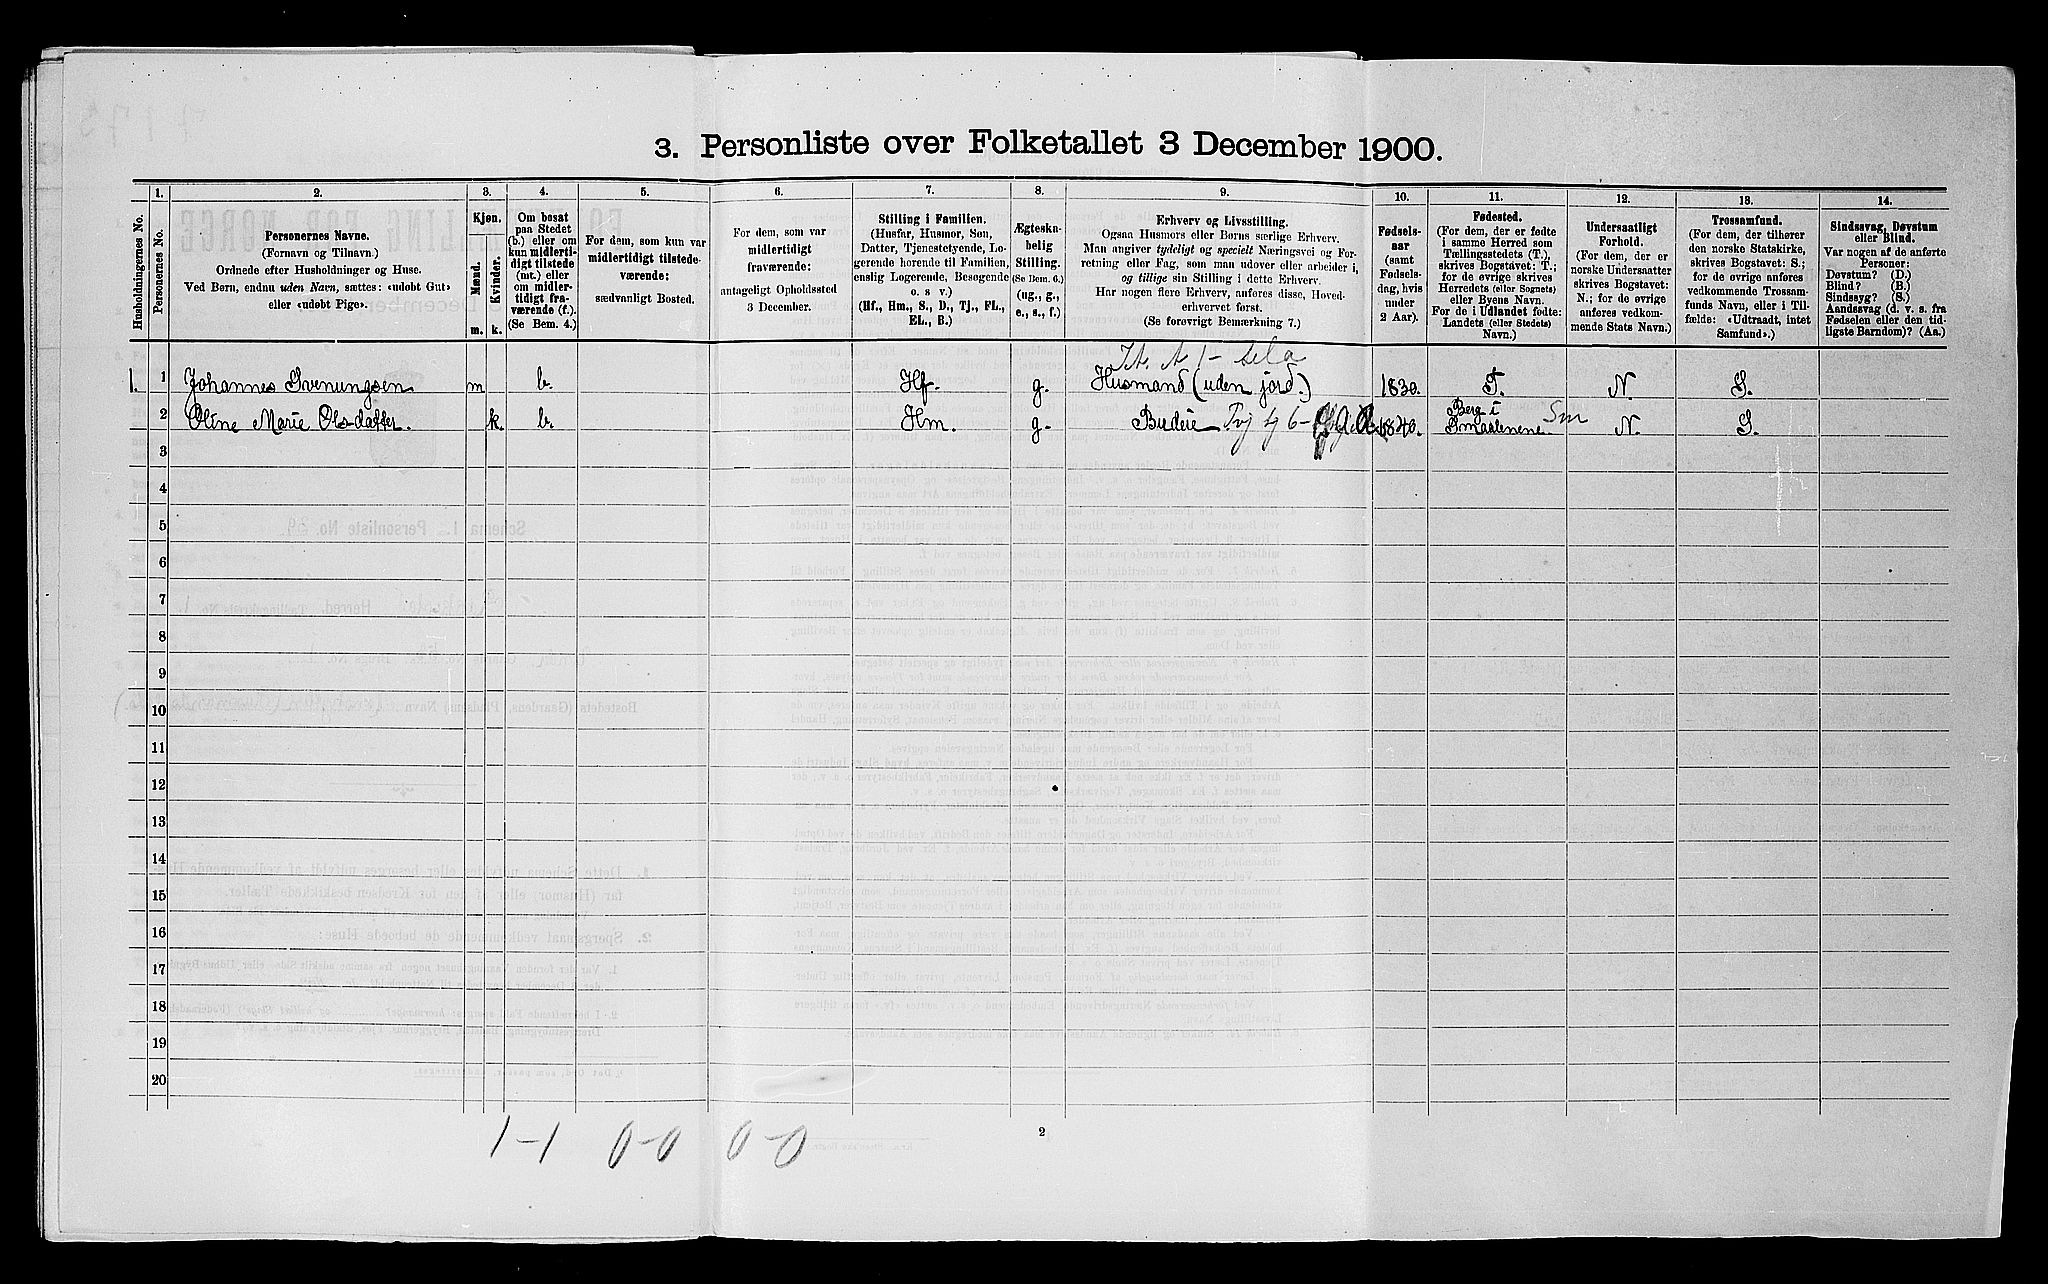 3. Personliste over Folketallet 3 December 1900.
Husholdningernes No.
1.
Personernes No.
2.
Personernes Navne.
(Fornavn og Tilnavn.)
Ordnede efter Husholdninger og Huse.
Ved Børn, endnu uden Navn, sættes: «udøbt Gut»
eller «udøbt Pige».
3.
Kjøn.
Mænd.
Kvinder.
m.
k.
4.
Om bosat
paa Stedet
(b.) eller om
kun midlerti-
digt tilstede
(mt.) eller
om midler-
tidigt fra-
værende (f.).
(Se Bem. 4.)
5.
For dem, som kun var
midlertidigt tilstede-
værende:
sædvanligt Bosted.
6.
For dem, som var
midlertidigt
fraværende:
antageligt Opholdssted
3 December.
7.
Stilling i Familien.
(Husfar, Husmor, Søn,
Datter, Tjenestetyende, Lo-
gerende hørende til Familien,
enslig Logerende, Besøgende
o. s v.)
(Hf., Hm., S., D., Tj., FL.,
EL., B.)
8.
Ægteska-
belig
Stilling.
(Se Bem. 6.)
(ug., g.,
e., s., f.)
9.
Erhverv og Livsstilling.
Ogsaa Husmors eller Børns særlige Erhverv.
Man angiver tydeligt og specielt Næringsvei og For-
retning eller Fag, som man udøver eller arbeider i,
og tillige sin Stilling i dette Erhverv.
Har nogen flere Erhverv, anføres disse, Hoved-
erhvervet først.
(Se forøvrigt Bemærkning 7.)
10.
Fødsels-
aar
(samt
Fødsels-
dag, hvis
under
2 Aar).
11.
Fødested.
(For dem, der er fødte
i samme Herred som
Tællingsstedets (T.),
skrives Bogstavet: T.;
for de øvrige skrives
Herredets (eller Sognets)
eller Byens Navn.
For de i Udlandet fødte:
Landets (eller Stedets)
Navn.)
12.
Undersaatligt
Forhold.
(For dem, der er
norske Undersaatter
skrives Bogstavet:
N.; for de øvrige
anføres vedkom-
mende Stats Navn.)
13.
Trossamfund.
(For dem, der tilhører
den norske Statskirke,
skrives Bogstavet: S.;
for de øvrige anføres
vedkommende Trossam-
funds Navn, eller i Til-
fælde: «Udtraadt, intet
Samfund».)
14.
Sindssvag, Døvstum
eller Blind.
Var nogen af de anførte
Personer:
Døvstum? (D.)
Blind? (B.)
Sindssyg? (S.)
Aandssvag (d. v. s. fra
Fødselen eller den tid-
ligste Barndom)? (Aa.)
1. 1 Johannes Svenungsen m b. Hf. g. Husmand (uden jord.) 1830. T. N. S.
2 Oline Marie Olsdatter. k. b. Hm. g. Budeie 1840. Berg i Smaalenene Sm N. S.
3
4
5
6
7
8
9
10
11
12
13
14
15
16
17
18
19
20
1-1 0-0 0-0
2